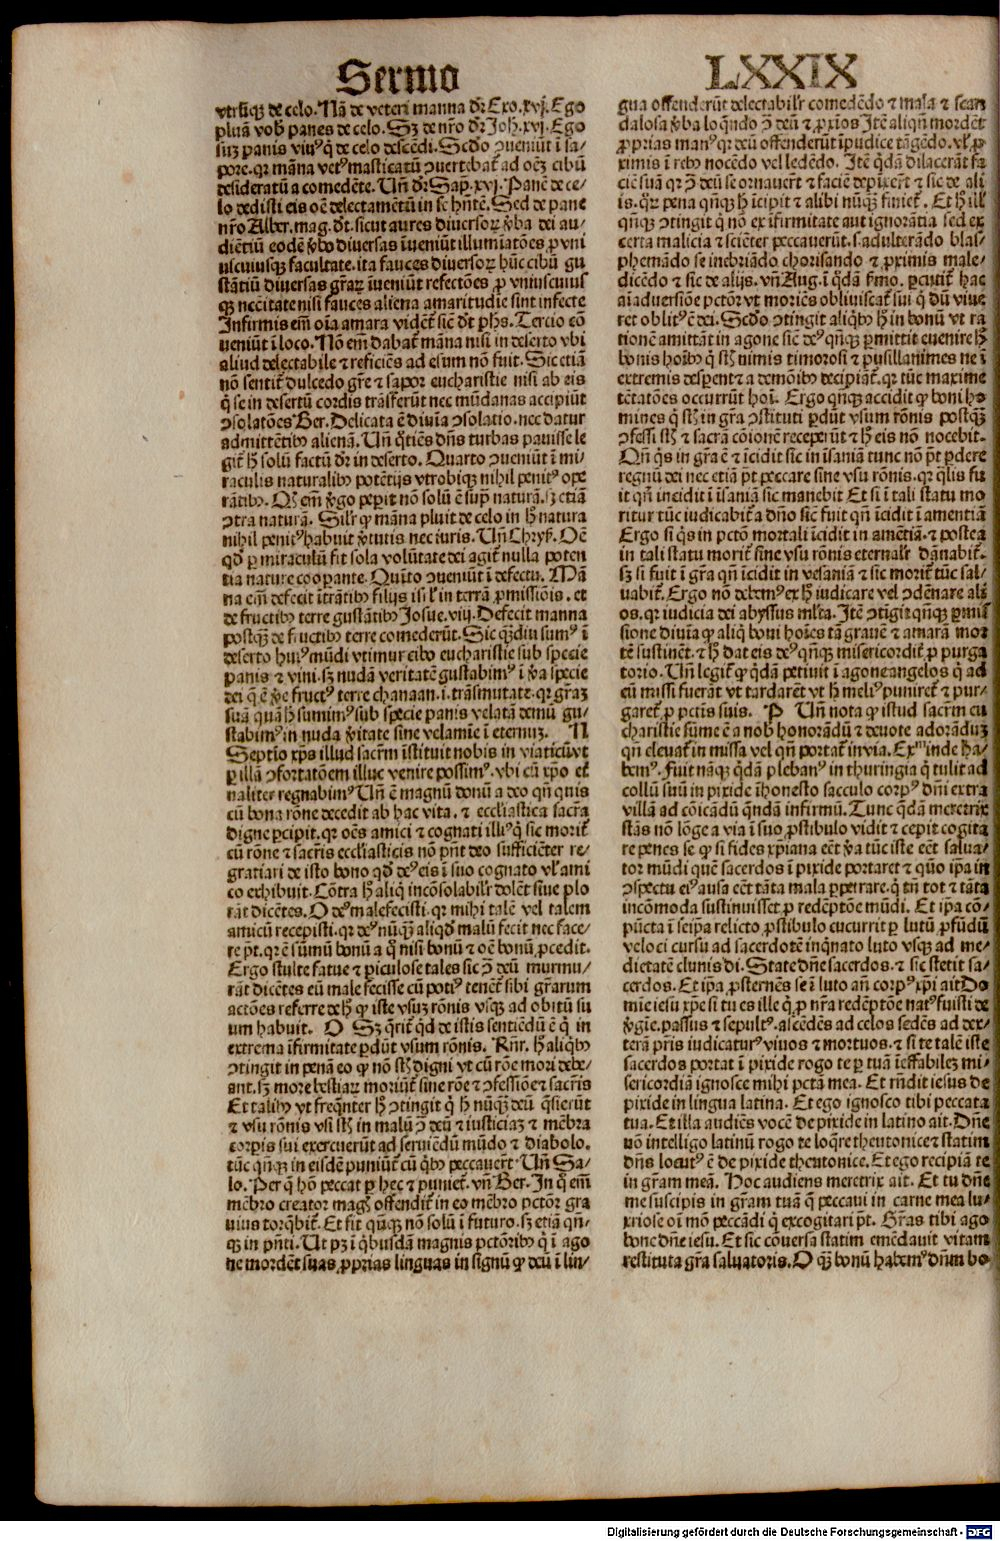 Sermo LXXIX
vtrũqꝫ de celo. Nã de veteri manna dr̃ Exo. xvj. Ego
pluã vob̃ panes de celo. Sꝫ de nr̃o dr̃ Joh̃. xvj. Ego
suꝫ panis viuꝰ q̇ de celo descẽdi. Scd̃o ꝯueniũt ĩ sa/
pore. qr mãna vetꝰ masticatũ ꝯuertebat̃ ad oẽꝫ cibũ
desideratũ a comedẽte. Uñ dr̃ Sap̃. xvj. Panẽ de ce/
lo dedisti eis oẽ delectamẽtũ in se hñtẽ. Sed de pane
nr̃o Alber. mag. dt̃. sicut aures diuersoꝝ v̓ba dei au/
diẽtiũ eodẽ v̓bo diuersas ĩueniũt illumĩatões ꝑ vni
uscuiusqꝫ facultate. ita fauces diuersoꝝ hũc cibũ gu
stãtiũ diuersas gr̃aꝝ ĩueniũt refectões ꝓ vniuscuius
qꝫ nec̃citate nisi fauces aliena amaritudie sint infecte
Infirmis em̃ oĩa amara vidẽt̃ sic̃ dt̃ ph̃s. Tercio cõ
ueniũt ĩ loco. Nõ em̃ dabat̃ mãna nisi in deserto vbi
aliud delectabile ⁊ reficiẽs ad esum nõ fuit. Sic etiã
nõ sentit̃ dulcedo gr̃e ⁊ sapor eucharistie nisi ab eis
q̇ se in desertũ cordis trãsferũt nec mũdanas accipiũt
ꝯsolatões Ber. Delicata ẽ diuĩa ꝯsolatio. nec datur
admittẽtibꝰ alienã. Uñ q̃tiẽs dñs turbas pauisse le
git̃ h̃ solũ factũ dr̃ in deserto. Quarto ꝯueniũt ĩ mi/
raculis naturalibꝰ potẽtijs vtrobiqꝫ nihil penitꝰ ope
rãtibꝰ. Qꝫ em̃ v̓go peꝑit nõ solũ ẽ sup̃ naturã. sꝫ etiã
ꝯtra naturã. Silr̃ ꝙ mãna pluit de celo in h̃ natura
nihil penitꝰ habuit v̓tutis nec iuris. Uñ Chrys̃. Oẽ
qd̃ ꝑ miraculũ fit sola volũtate dei agit̃ nulla poten
tia nature cooꝑante. Quĩto ꝯueniũt ĩ defectu. Mã
na em̃ defecit ĩtrãtibꝰ filijs isrl̃ in terrã ꝓmissiõis. et
de fructibꝰ terre gustãtibꝰ Josue. viij. Defecit manna
postqꝫ̃ de fructibꝰ terre comederũt. Sic qꝫ̃diu sumꝰ ĩ
deserto huiꝰ mũdi vtimur cibo eucharistie sub specie
panis ⁊ vini. sꝫ nudã veritatẽ gustabimꝰ ĩ v̓a specie
dei q̇ ẽ v̓e fructꝰ terre chanaan. i. trãsmutate. qr gr̃aꝫ
suã quã h̃ sumimꝰ sub specie panis velatã demũ gu/
stabimꝰ in nuda v̓itate sine velamĩe ĩ eternuꝫ. N
Septĩo xp̃s illud sacrm̃ ĩstituit nobis in viaticũ vt
ꝑ illã ꝯfortatõem illuc venire possimꝰ. vbi cũ xp̃o et̃
naliter regnabimꝰ Uñ ẽ magnũ donũ a deo qñ quis
cũ bona rõne decedit ab hac vita. ⁊ eccl̃iastica sacr̃a
digne ꝑcipit. qr oẽs amici ⁊ cognati illiꝰ q̇ sic morit̃
cũ rõne ⁊ sacr̃is eccl̃iasticis nõ pñt deo sufficiẽter re/
gratiari de isto bono qd̃ deꝰ eis ĩ suo cognato vl̃ ami
co exhibuit. Cõtra h̃ aliq̇ incõsolabilr̃ dolẽt siue plo
rãt dicẽtes. O deꝰ malefecisti. qr mihi talẽ vel talem
amicũ recepisti. qr deꝰ nũqꝫ̃ aliqd̃ malũ fecit nec face/
re pt̃. qr ẽ sũmũ bonũ a q̇ nisi bonũ ⁊ oẽ bonũ ꝓcedit.
Ergo stulte fatue ⁊ ꝑiculose tales sic ꝯ̃ deũ murmu/
rãt dicẽtes eũ male fecisse cũ potiꝰ tenẽt̃ sibi gr̃arum
actões referre de h̃ ꝙ iste vsuꝫ rõnis vsqꝫ ad obitũ su
um habuit. O Sꝫ q̃rit̃ qd̃ de istis sentiẽdũ ẽ q̇ in
extrema ĩfirmitate ꝑdũt vsum rõnis. Rñr. h̃ aliqb̃ꝰ
ꝯtingit in penã eo ꝙ nõ st̃ digni vt cũ rõne mori debe/
ant. sꝫ more bestiaꝝ moriũt̃ sine rõe ⁊ ꝯfessiõe ⁊ sacr̃is
Et talibꝰ vt freq̃nter h̃ ꝯtingit q̇ h̃ nũqꝫ̃ deũ q̃sierũt
⁊ vsu rõnis vsi st̃ in malũ ꝯ̃ deũ ⁊ iusticiaꝫ ⁊ mẽbra
corꝑis sui exercuerũt ad seruiẽdũ mũdo ⁊ diabolo.
tũc qñqꝫ in eisdẽ puniũt̃ cũ q̇bꝰ peccauer̃t Uñ Sa/
lo. Per q̇ hõ peccat ꝑ hec ⁊ puniet̃. vñ Ber. In q̇ em̃
mẽbro creator magꝭ offendit̃ in eo mẽbro pctõr gra
uius torq̃bit̃. Et fit qñqꝫ nõ solũ ĩ futuro. sꝫ etiã qñ/
qꝫ in pñti. Ut pꝫ ĩ q̇busdã magnis pctõribꝰ q̇ ĩ ago
ne mordẽt suas ꝓprias linguas in signũ ꝙ deũ ĩ lin/
gua offenderũt delectabilr̃ comedẽdo ⁊ mala ⁊ scan
dalosa v̓ba loq̃ndo ꝯ̃ deũ ⁊ ꝓxĩos Itẽ aliqñ mordẽt
ꝓprias manꝰ qr deũ offenderũt ĩpudice tãgẽdo. vl̃ ꝓ
ximis ĩ rebꝰ nocẽdo vel ledẽdo. Itẽ q̇dã dilacerãt fa
ciẽ suã qr ꝯ̃ deũ se ornauer̃t ⁊ faciẽ depixer̃t ⁊ sic de ali
is. q̇ꝝ pena qñqꝫ h̃ ĩcipit ⁊ alibi nũqꝫ̃ finiet̃. Et h̃ ill̃
qñqꝫ ꝯtingit q̇ nõ ex ĩfirmitate aut ignorãtia sed ex
certa malicia ⁊ sciẽter peccauerũt. s. adulterãdo blas/
phemãdo se inebriãdo chorisando ⁊ ꝓximis male/
dicẽdo ⁊ sic de alijs. vñ Aug. ĩ q̇dã s̃mo. ꝑcutit̃ hac
aĩaduersiõe pctõr vt moriẽs obliuiscat̃ sui q̇ dũ viue
ret oblitꝰ ẽ dei. Scd̃o ꝯtingit aliqb̃ꝰ h̃ in bonũ vt ra
tionẽ amittãt in agone sic̃ deꝰ qñqꝫ ꝑmittit euenire h̃
bonis hoĩbꝰ q̇ st̃ nimis timorosi ⁊ pusillanimes ne ĩ
extremis desꝑent ⁊ a demõibꝰ decipiãt̃. qr tũc maxime
tẽtatões occurrũt hoĩ. Ergo qñqꝫ accidit ꝙ boni ho
mines q̇ st̃ in gr̃a ꝯstituti ꝑdũt vsum rõnis postqꝫ̃
ꝯfessi st̃ ⁊ sacrã cõionẽ receperũt ⁊ h̃ eis nõ nocebit.
Qñ q̇s in gr̃a ẽ ⁊ ĩcidit sic in ĩsaniã tunc nõ pt̃ ꝑdere
regnũ dei nec etiã pt̃ peccare sine vsu rõnis. qr q̃lis fu
it qñ incidit ĩ ĩsaniã sic manebit Et si ĩ tali statu mo
ritur tũc iudicabit̃ a dño sic̃ fuit qñ ĩcidit ĩ amentiã
Ergo si q̇s in pctõ mortali ĩcidit in amẽtiã. ⁊ postea
in tali statu morit̃ sine vsu rõnis eternalr̃ dãnabit̃.
sꝫ si fuit ĩ gr̃a qñ ĩcidit in vesaniã ⁊ sic morit̃ tũc sal/
uabit̃. Ergo nõ debemꝰ ex h̃ iudicare vel ꝯdẽnare ali
os. qr iudicia dei abyssus ml̃ta. Itẽ ꝯtĩgit qñqꝫ ꝑmis
sione diuĩa ꝙ aliq̇ boni hoĩes tã grauẽ ⁊ amarã mor
tẽ sustinẽt. ⁊ h̃ dat eis deꝰ qñqꝫ misericordit̃ ꝓ purga
torio. Uñ legit̃ ꝙ q̇dã petiuit ĩ agone angelos q̇ ad
eũ missi fuerãt vt tardarẽt vt h̃ meliꝰ puniret̃ ⁊ pur/
garet̃ ꝓ pctĩs suis. P Uñ nota ꝙ istud sacrm̃ eu
charistie sũme ẽ a nob̃ honorãdũ ⁊ deuote adorãduꝫ
qñ eleuat̃ in missa vel qñ portat̃ in via. Exᵐ inde ha/
bemꝰ. Fuit nãqꝫ q̇dã plebanꝰ in thuringia q̇ tulit ad
collũ suũ in pixide ĩhonesto sacculo corpꝰ dñi extra
villã ad cõicãdũ quẽdã infirmũ. Tunc q̃dã meretrix
stãs nõ lõge a via ĩ suo ꝓstibulo vidit ⁊ cepit cogita
re penes se ꝙ si fides xp̃iana eẽt v̓a tũc iste eẽt salua/
tor mũdi quẽ sacerdos ĩ pixide portaret ⁊ quõ ip̃a in
ꝯspectu eiꝰ ausa eẽt tãta mala ꝑpetrare. q̇ tñ tot ⁊ tãta
incõmoda sustinuisset ꝓ redẽptõe mũdi. Et ip̃a cõ/
pũcta ĩ seip̃a relicto ꝓstibulo cucurrit ꝑ lutũ ꝓfũdũ
veloci cursu ad sacerdotẽ inq̇nato luto vsqꝫ ad me/
dictatẽ clunis di. State dñe sacerdos. ⁊ sic stetit sa/
cerdos. Et ip̃a ꝓsternẽs se ĩ luto añ corpꝰ xp̃i ait Do
mĩe iesu xp̃e si tu es ille q̇ ꝓ nr̃a redẽptõe natꝰ fuisti de
v̓gĩe. passus ⁊ sepultꝰ. ascẽdẽs ad celos sedẽs ad dex/
terã pr̃is iudicaturꝰ viuos ⁊ mortuos. ⁊ si te talẽ iste
sacerdos portat ĩ pixide rogo te ꝑ tuã ĩeffabileꝫ mi/
sericordiã ignosce mihi pctã mea. Et rñdit iesus de
pixide in lingua latina. Et ego ignosco tibi peccata
tua. Et illa audiẽs vocẽ de pixide in latino ait. Dñe
nõ intelligo latinũ rogo te loq̃re theutonice ⁊ statim
dñs locutꝰ ẽ de pixide theutonice. Et ego recipiã te
in gr̃am meã. Hoc audiens meretrix ait. Et tu dñe
me suscipis in gr̃am tuã q̃ peccaui in carne mea lu/
xriose oĩ mõ peccãdi q̇ excogitari pt̃. Gr̃as tibi ago
bone dñe iesu. Et sic cõuersa statim emẽdauit vitam
restituta gr̃a saluatoris. O qꝫ̃ bonũ habemꝰ dñm bo
Digitalisierung gefördert durch die Deutsche Forschungsgemeinschaft - DFG